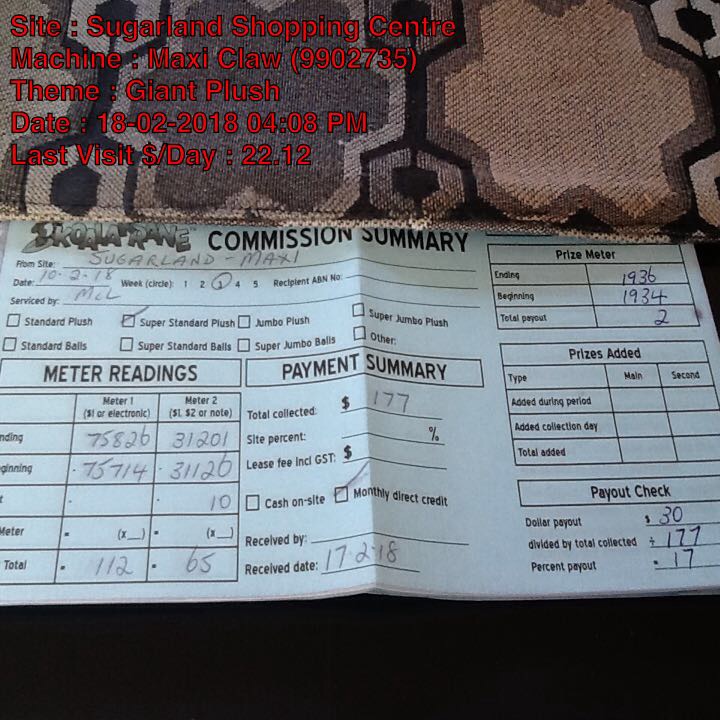 Site : Sugarland Shopping Centre
Machine : Maxi Claw (9902735)
Theme : Giant Plush
Date : 18-02-2018 04:08 PM
Last Visit $/Day : 22.12
COMMISSION SUMMARY
From Site: SUGARLAND - MAXI
Date: 10-2-18 Week (circle): 1 2 3 4 5 Recipient ABN No:
Serviced by: McL
Standard Plush Super Standard Plush Jumbo Plush Super Jumbo Plush
Standard Balls Super Standard Balls Super Jumbo Balls Other:
METER READINGS
Meter 1 Meter 2
($1 or electronic) ($1, $2 or note)
nding 75826 31201
ginning 75714 31126
t 10
Meter = (x__) = (x__)
Total 112 65
PAYMENT SUMMARY
Total collected: $ 177
Site percent: %
Lease fee incl GST: $
Cash on-site Monthly direct credit
Received by:
Received date: 17-2-18
Prize Meter
Ending 1936
Beginning 1934
Total payout 2
Prizes Added
Type Main Second
Added during period
Added collection day
Total added
Payout Check
Dollar payout $ 30
divided by total collected ÷ 177
Percent payout = 17